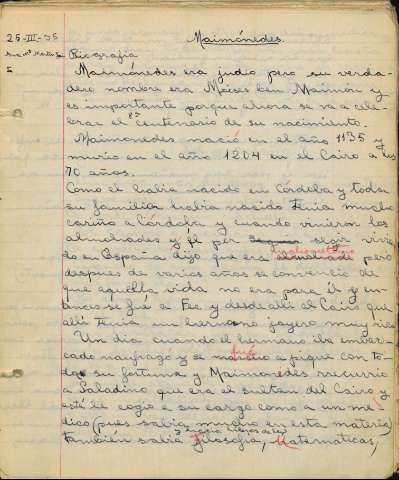 25-III-35
Maimónedes.
Biografía
Maimónedes era judio pero su verda-
dero nombre era Moises ben Maimón y
es importante porque ahora se va a cele-
brar el 8º centenario de su nacimiento.
Maimonedes nació en el año 1135 y
murio en el año 1204 en el Cairo a los
70 años.
Como el habia nacido en Córdoba y toda
su familia habia nacido tenia mucho
cariño a Córdoba y cuando vinieron los
almohades y él por seguir vivien
do en España dijo que era almohade pero
despues de varios años se convencio de
que aquella vida no era para él y en-
tonces se fué a Fez y desde alli al Cairo que
alli tenia un hermano joyero muy rico
Un dia cuando el hermano iba embar-
cado naufragó y se fué a pique con to-
da su fortuna y Maimonedes recurrio
a Saladino que era el sultan del Cairo y
este le cogio a su cargo como a un mé-
dico (pues sabia mucho en esta materia)
también sabia filosofia, Matematicas,